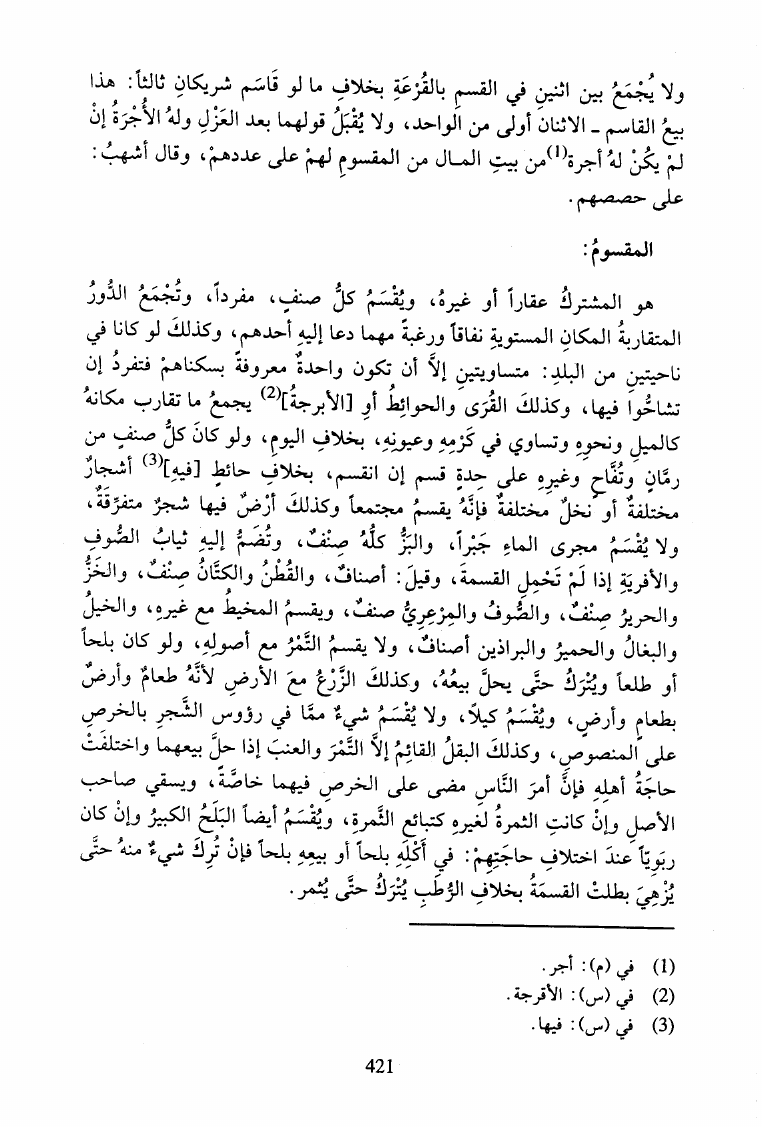 ولا يُجْمَعُ بين اثنينِ في القسمِ بالقُرْعَةِ بخلافِ ما لو قَاسَم شريكانِ ثالثاً: هذا
بيعُ القاسم - الاثنان أولى من الواحد، ولا يُقْبَلُ قولهما بعد العَزْلِ ولهُ الأُجْرَةُ إنْ
لمْ يكُنْ لهُ أجرة(1) من بيتِ المال من المقسومِ لهمْ على عددهمْ، وقال أشهبُ:
على حصصهم.
المقسومُ:
هو المشتركُ عقاراً أو غيرهُ، ويُقْسَمُ كلُّ صنفٍ، مفرداً، وتُجْمَعُ الدُّورُ
المتقاربةُ المكانِ المستويةِ نفاقاً ورغبةً مهما دعا إليهِ أحدهم، وكذلكَ لو كانا في
ناحيتينِ من البلدِ: متساويتينِ إلاَّ أن تكون واحدةٌ معروفةً بسكناهمْ فتفردُ إن
تشاحُّوا فيها، وكذلكَ القُرَى والحوائِطُ أوِ [الأبرجةُ](2) يجمعُ ما تقارب مكانهُ
كالميلِ ونحوِهِ وتساوي في كَرْمِهِ وعيونِهِ، بخلافِ اليومِ، ولو كانَ كلُّ صنفٍ من
رمَّانٍ وتُفَّاحٍ وغيرِهِ على حِدةٍ قسم إن انقسم، بخلافِ حائطٍ [فيهِ](3) أشجارٌ
مختلفةٌ أو نخلٌ مختلفةٌ فإنَّهُ يقسمُ مجتمعاً وكذلكَ أرْضٌ فيها شجرٌ متفرِّقَةٌ،
ولا يُقْسَمُ مجرى الماءِ جَبْراً، والبَزُّ كلُّهُ صِنْفٌ، وتُضَمُّ إليهِ ثيابُ الصُّوفِ
والأفريَةِ إذا لَمْ تَحْمِلِ القسمةَ، وقيلَ: أصنافٌ، والقُطْنُ والكتَّانُ صِنْفٌ، والخَزُّ
والحريرُ صِنْفٌ، والصُّوفُ والمِرْعِزِيُّ صنفٌ، ويقسمُ المخيطُ مع غيرِهِ، والخيلُ
والبغالُ والحميرُ والبراذين أصنافٌ، ولا يقسمُ التَّمْرُ مع أصولِهِ، ولو كان بلحاً
أو طلعاً ويُتْرَكُ حتَّى يحلَّ بيعُهُ، وكذلكَ الزَّرْعُ معَ الأرْضِ لأنَّهُ طعامٌ وأرضٌ
بطعامٍ وأرضٍ، ويُقْسَمُ كيلاً، ولا يُقْسَمُ شيءٌ ممَّا في رؤوسِ الشَّجرِ بالخرصِ
على المنصوصِ، وكذلكَ البقلُ القائِمُ إلاَّ التَّمْرَ والعنبَ إذا حلَّ بيعهما واختلفتْ
حاجَةُ أهلِهِ فإنَّ أمرَ النَّاسِ مضى على الخرصِ فيهما خاصَّةً، ويسقي صاحب
الأصلِ وإنْ كانتِ الثمرةُ لغيرِهِ كتبائعِ الثَّمرةِ، ويُقْسَمُ أيضاً البَلَحُ الكبيرُ وإنْ كان
ربَوِيّاً عندَ اختلافِ حاجَتِهِمْ: في أكْلِهِ بلحاً أو بيعِهِ بلحاً فإنْ تُرِكَ شيءٌ منهُ حتَّى
يُزْهِيَ بطلتْ القسمَةُ بخلافِ الرُّطَبِ يُتْرَكُ حتَّى يُثمر.
(1) في (م): أجر.
(2) في (س): الأقرجة.
(3) في (س): فيها.
421